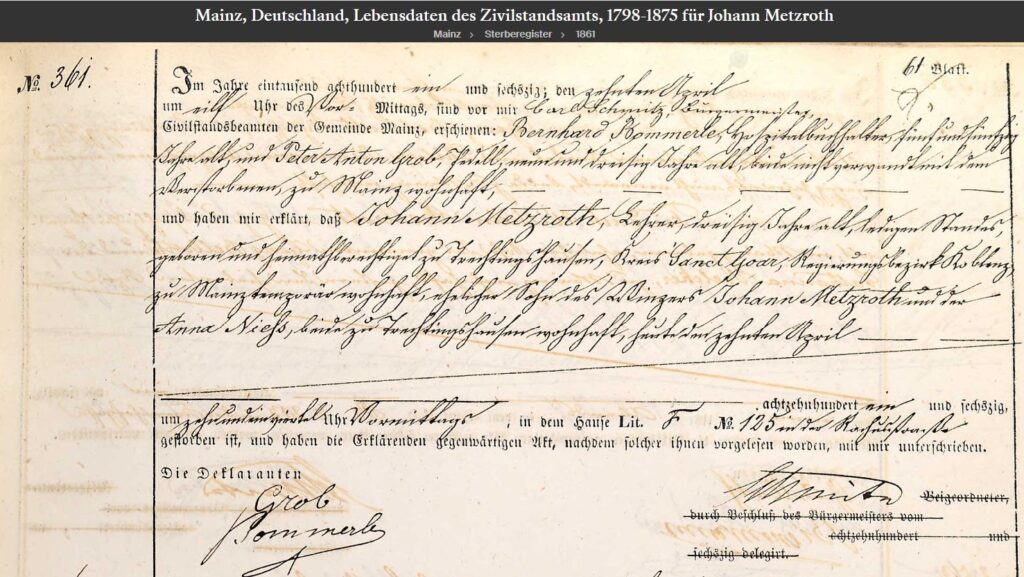 Mainz, Deutschland, Lebensdaten des Zivilstandsamts, 1798-1875 für Johann Metzroth
Mainz › Sterberegister › 1861
61 Blatt.
№. 361.
Im Jahre eintausend achthundert ein und sechszig; den zehnten April
um eilf Uhr des Vor- Mittags, sind vor mir Carl Schmitz, Bürgermeister,
Civilstandsbeamten der Gemeinde Mainz, erschienen: Bernhard Bommerle, Hospitalbuchhalter, fünfundfünfzig
Jahre alt, und Peter Anton Grob, Pedell, neununddreisig Jahre alt, beide nicht verwandt mit dem
Verstorbenen, zu Mainz wohnhaft,
und haben mir erklärt, daß Johann Metzroth, Lehrer, dreisig Jahre alt, ledigen Standes,
geboren und heimathberechtiget zu Trechtingshausen, Kreis Sanct Goar, Regierungsbezirk Koblenz,
zu Mainz temporär wohnhaft, ehelicher Sohn des Winzers Johann Metzroth und der
Anna Niehs, beide zu Trechtingshausen wohnhaft, heute den zehnten April
achtzehnhundert ein und sechszig,
um zehn und ein viertel Uhr Vormittags, in dem Hause Lit. F №. 125 in der Rochusstraße
gestorben ist, und haben die Erklärenden gegenwärtigen Akt, nachdem solcher ihnen vorgelesen worden, mit mir unterschrieben.
Die Deklaranten
Grob
Bommerle
Schmitz
Beigeordneter,
durch Beschluß des Bürgermeisters vom
achtzehnhundert und
sechszig delegirt.